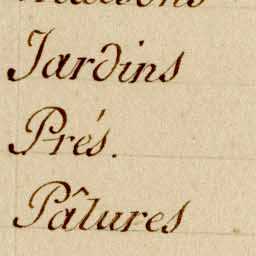 Jardins
Prés.
Pâtures